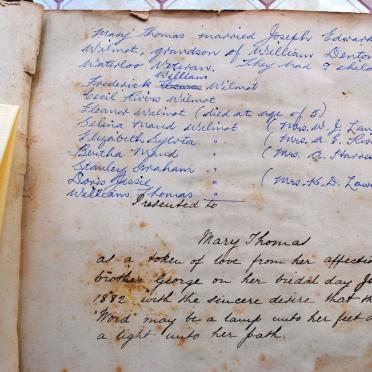 Mary Thomas married Joseph Edward
Wilmot, grandson of William Denton
Waterloo Veteran. They had 9
William
Frederick Wilmot
Cecil Wilmot
Eleanor Wilmot (died at age of 5)
Selina Maud Wilmot (Mrs. W. J.
Elizabeth Sylvia " (Mrs. A. E.
Bertha Maud " (Mrs. A.
Stanley Graham "
Doris Jessie " (Mrs. H. D.
William Thomas "
Presented to
Mary Thomas
as a token of love from her
brother George on her bridal day
1882 with the sincere desire that
"Word" may be a lamp unto her feet
a light unto her path.